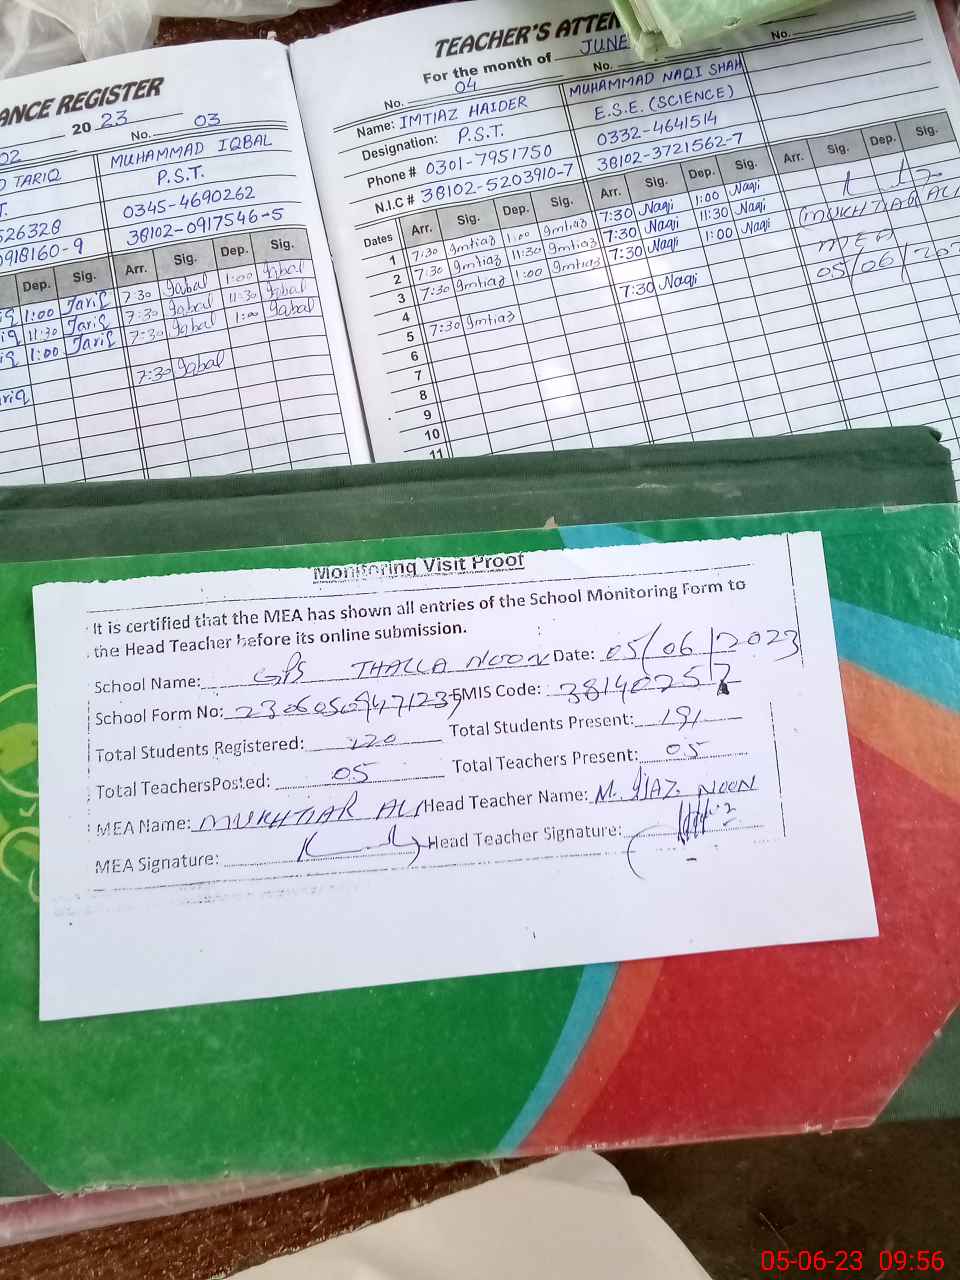 ANCE REGISTER
2023
02
No. 03
TARIQ
MUHAMMAD IQBAL
P.S.T.
526328
0345-4690262
0918160-9
38102-0917546-5
Dep. Sig. Arr. Sig. Dep. Sig.
1:00 Tariq 7:30 Iqbal 1:00 Iqbal
11:30 Tariq 7:30 Iqbal 11:30 Iqbal
1:00 Tariq 7:30 Iqbal 1:00 Iqbal
7:30 Iqbal
TEACHER'S ATTEN
For the month of JUNE
No. 04 No. No.
Name: IMTIAZ HAIDER MUHAMMAD NAQI SHAH
Designation: P.S.T. E.S.E. (SCIENCE)
Phone # 0301-7951750 0332-4641514
N.I.C # 38102-5203910-7 38102-3721562-7
Dates Arr. Sig. Dep. Sig. Arr. Sig. Dep. Sig. Arr. Sig. Dep. Sig.
1 7:30 Imtiaz 1:00 Imtiaz 7:30 Naqi 1:00 Naqi
2 7:30 Imtiaz 11:30 Imtiaz 7:30 Naqi 11:30 Naqi
3 7:30 Imtiaz 1:00 Imtiaz 7:30 Naqi 1:00 Naqi
4
5 7:30 Imtiaz 7:30 Naqi
6
7
8
9
10
11
(MUKHTIAR ALI
MEA
05/06/202
Monitoring Visit Proof
It is certified that the MEA has shown all entries of the School Monitoring Form to
the Head Teacher before its online submission.
School Name: GPS THALLA NOON Date: 05/06/2023
School Form No: EMIS Code: 38140257
Total Students Registered: 220 Total Students Present: 191
Total TeachersPosted: 05 Total Teachers Present: 05
MEA Name: MUKHTIAR ALI Head Teacher Name: M. IJAZ NOON
MEA Signature: Head Teacher Signature:
05-06-23 09:56